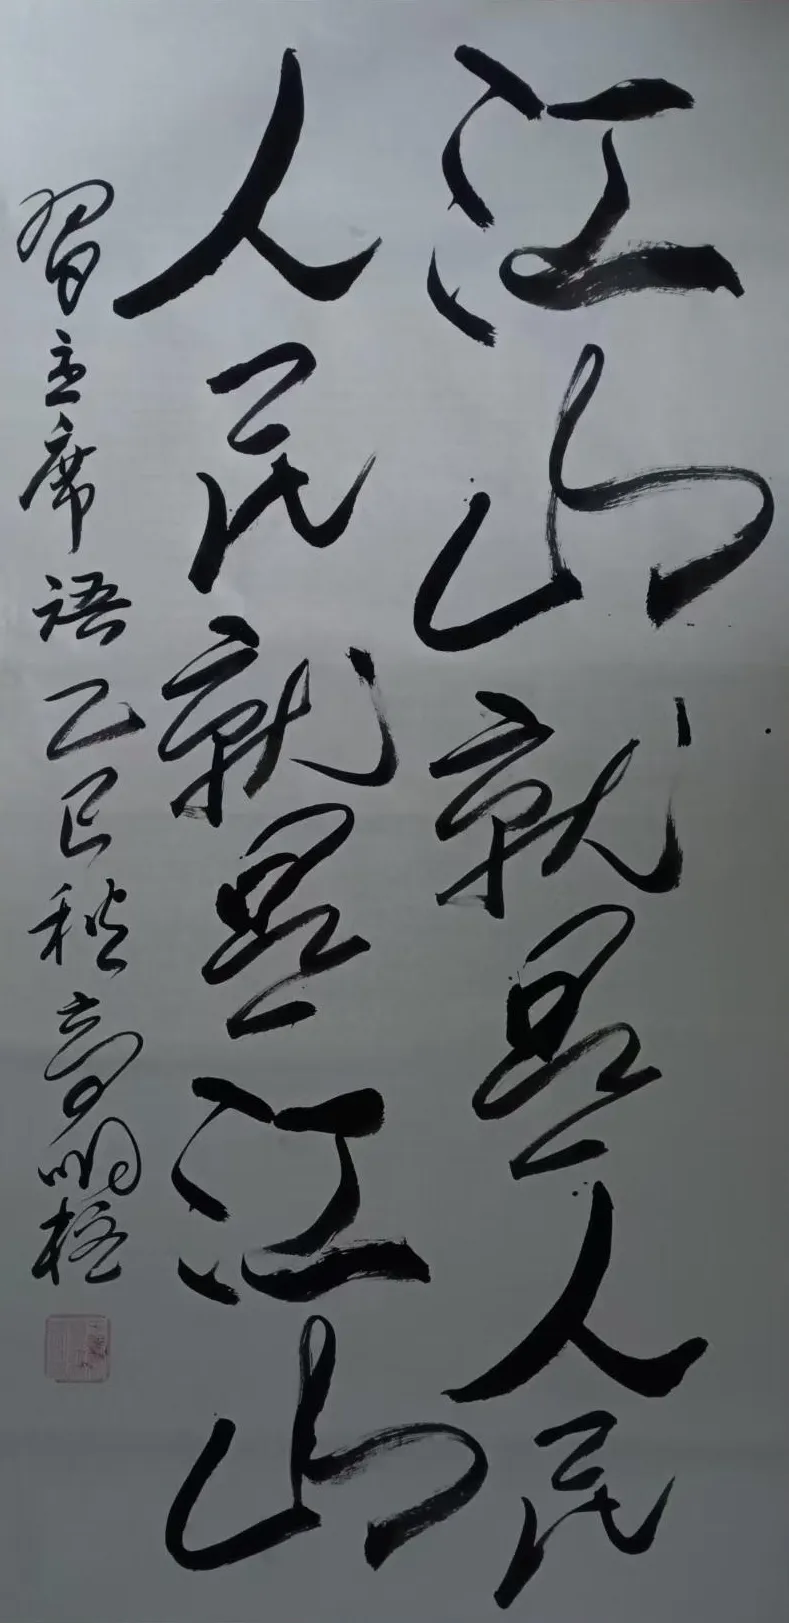 江山就是人民
人民就是江山
習主席語乙巳秋高明柱